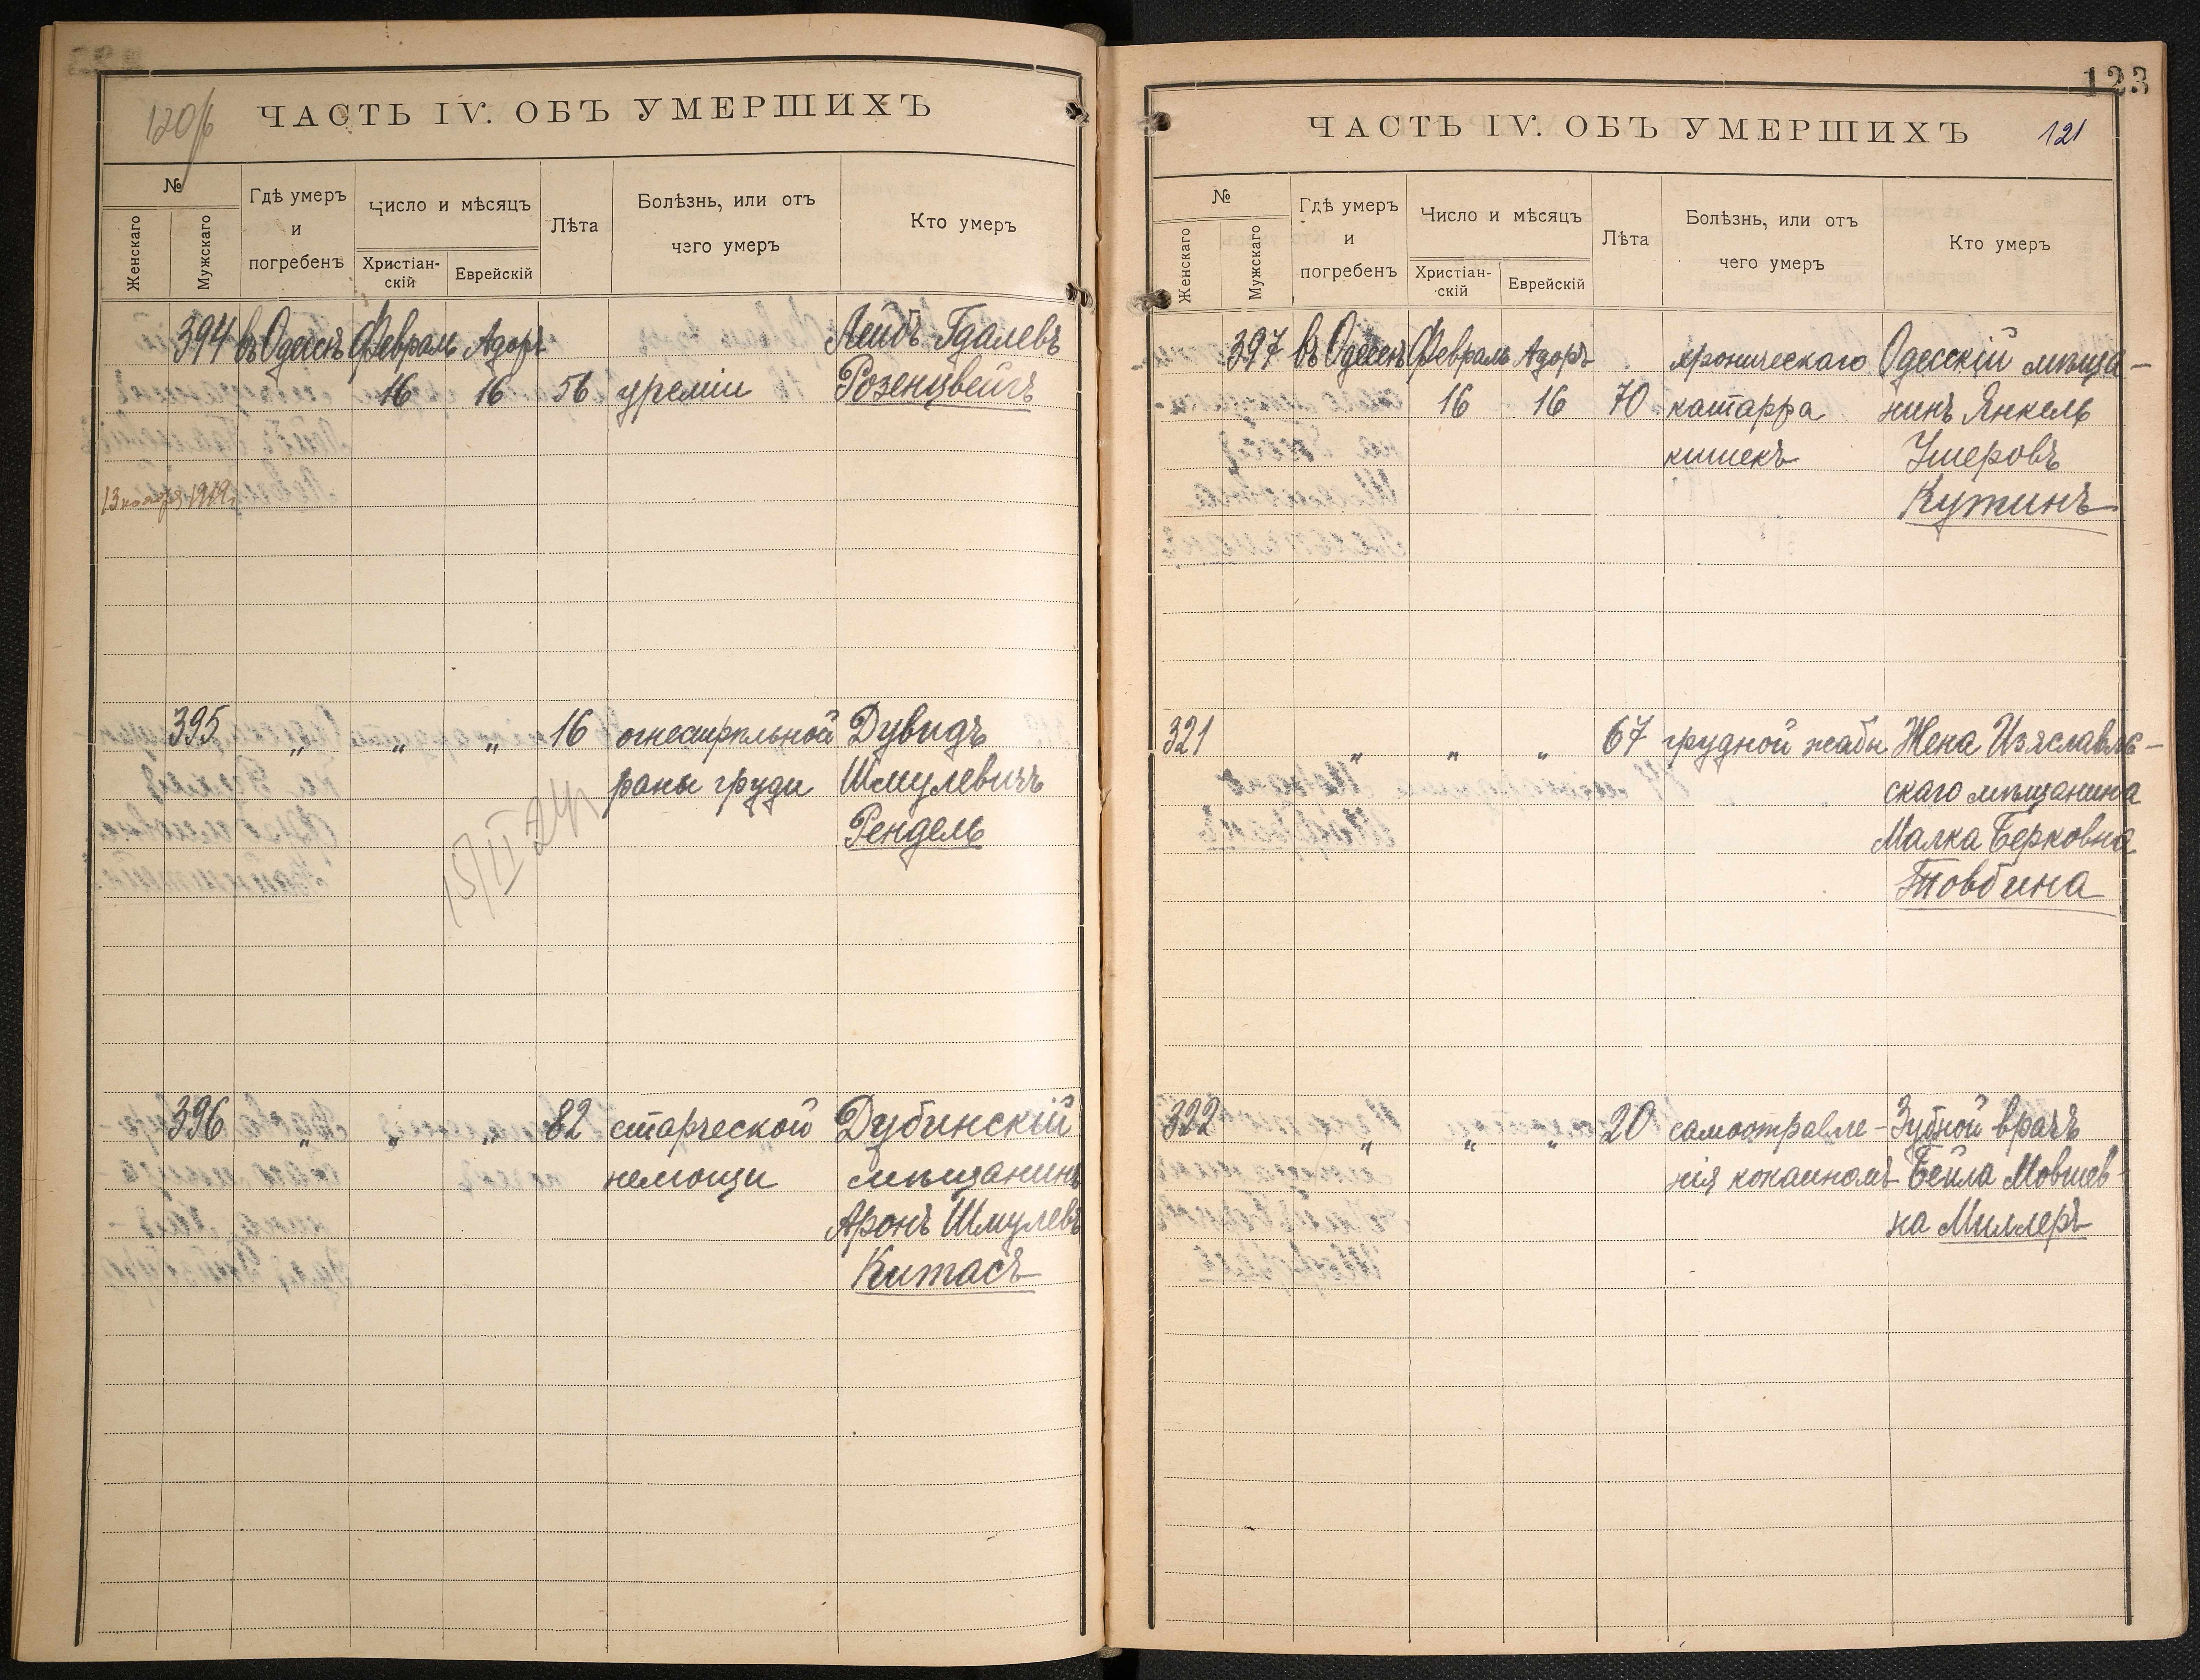 120/б
ЧАСТЬ IV. ОБЪ УМЕРШИХЪ
№
Женскаго
Мужскаго
Гдѣ умеръ
и
погребенъ
Число и мѣсяцъ
Христіан-
скій
Еврейскій
Лѣта
Болѣзнь, или отъ
чего умеръ
Кто умеръ
394 въ Одессѣ Февраль Адоръ Лейбъ Гдалевъ
16 16 56 уреміи Розенцвейгъ
13 ноября 1919г.
395 „ „ „ 16 огнестрѣльной Дувидъ
раны груди Шмулевичъ
15/II 24г Рендель
396 „ „ „ 82 старческой Дубинскій
немощи мѣщанинъ
Аронъ Шмулевъ
Китасъ
123
ЧАСТЬ IV. ОБЪ УМЕРШИХЪ 121
№
Женскаго
Мужскаго
Гдѣ умеръ
и
погребенъ
Число и мѣсяцъ
Христіан-
скій
Еврейскій
Лѣта
Болѣзнь, или отъ
чего умеръ
Кто умеръ
397 въ Одессѣ Февраль Адоръ хроническаго Одесскій мѣща-
16 16 70 катарра нинъ Янкель
кишекъ Ушеровъ
Кутинъ
321 „ „ „ 67 грудной жабы Жена Изяславль-
скаго мѣщанина
Малка Берковна
Товбина
322 „ „ „ 20 самоотравле- Зубной врачъ
нія кокаиномъ Бейла Мовшев-
на Миллеръ